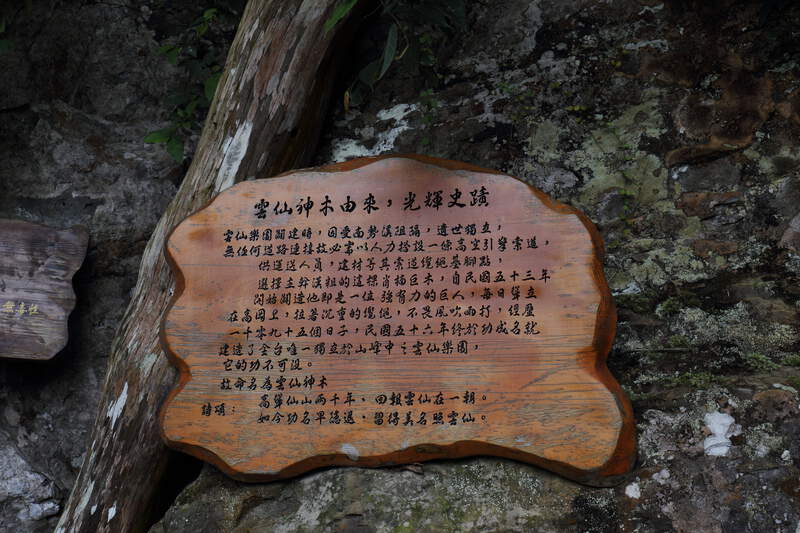 雲仙神木由來，光輝史蹟
雲仙樂園開建時，因受南勢溪阻隔，遺世獨立，
無任何道路連接故必需以人力搭設一條高空引擎索道，
供運送人員，建材等其索道纜繩基腳點，
選擇立於溪祖的這棵肖楠巨木，自民國五十三年
開始開造他即是一位 強有力的巨人，每日聳立
在高岡上，拉著沉重的纜繩，不畏風吹雨打，經歷
一千零九十五個日子，民國五十六年終於功成名就
建造了全台唯一獨立於山峰中之雲仙樂園，
它的功不可沒。
故命名為雲仙神木
高聳仙山兩千年、回報雲仙在一朝。
詩頌： 如今功名早隱退、留得美名照雲仙。